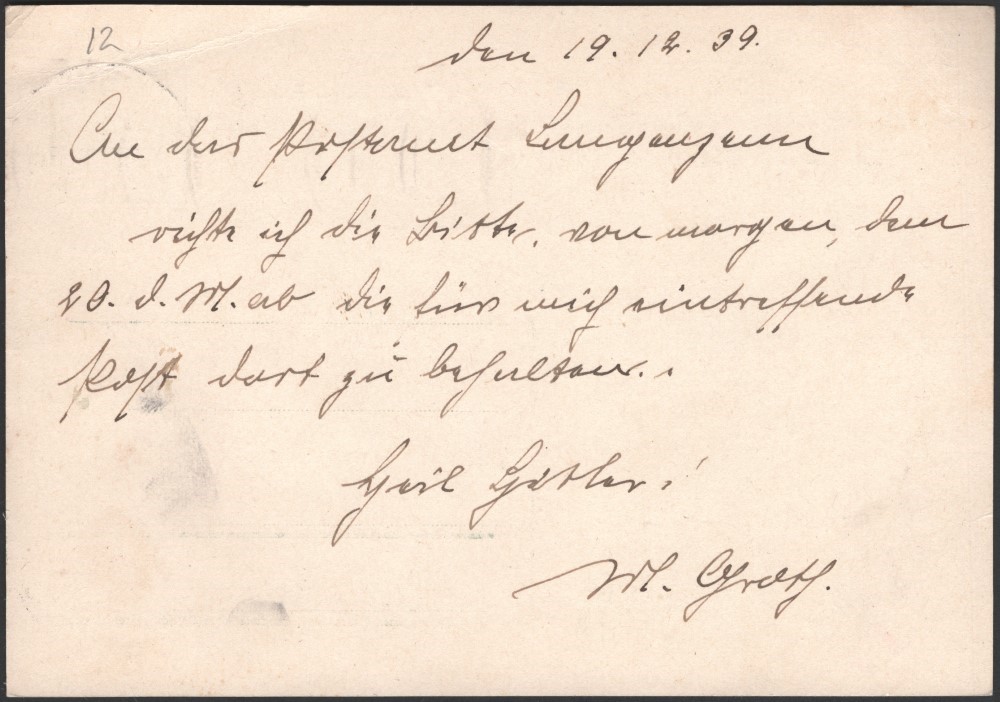 12
den 19. 12. 39.
An das Postamt Langenzenn
richte ich die Bitte, von morgen, dem
20. d. M. ab die für mich eintreffende
Post dort zu behalten.
Heil Hitler!
M. Groth.